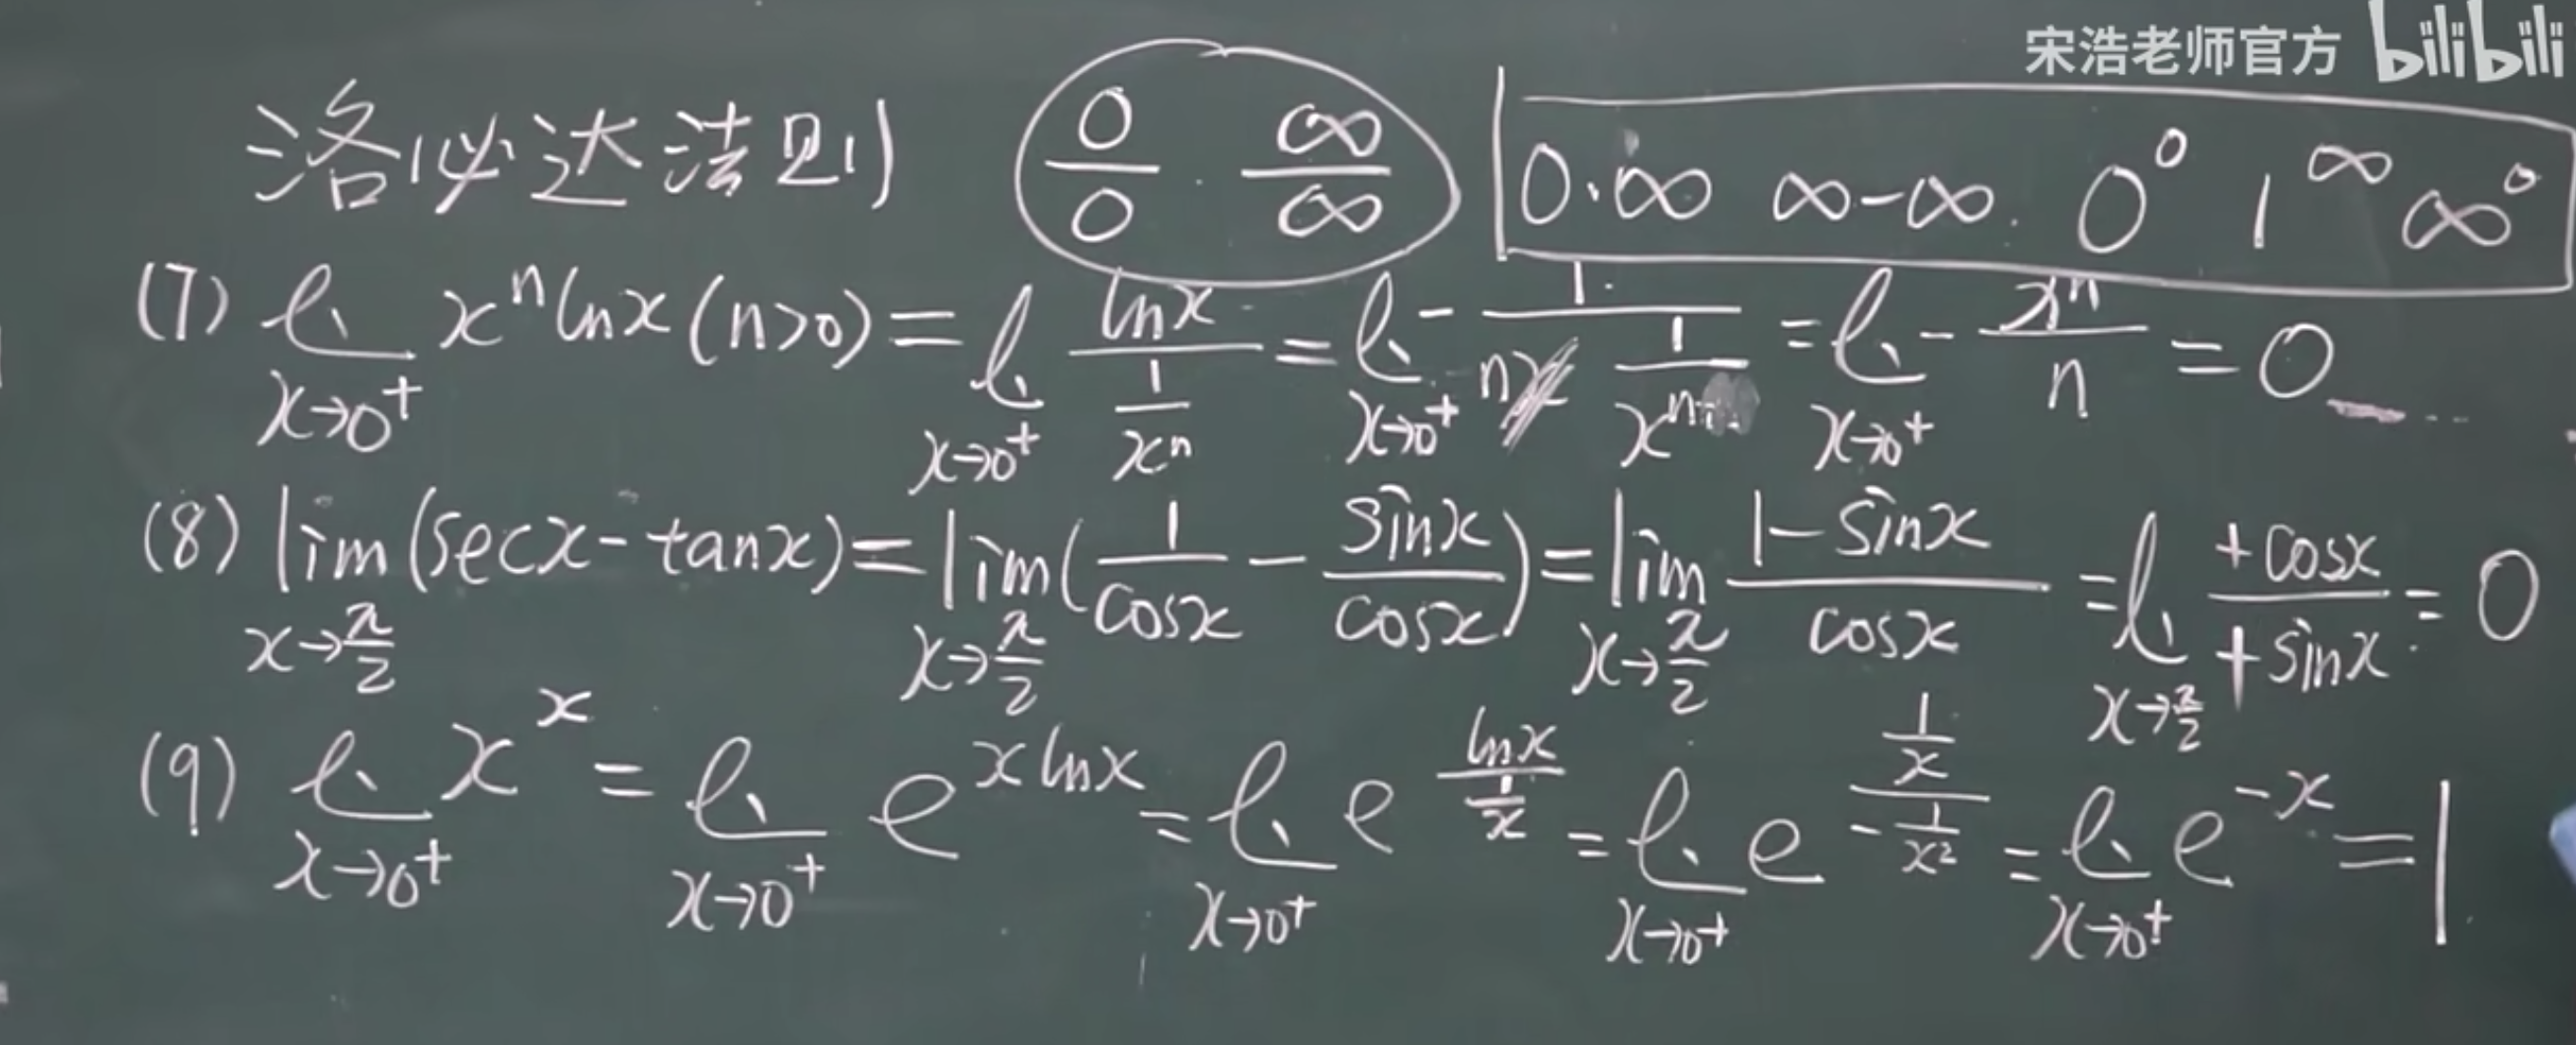 宋浩老师官方 bilibili
洛必达法则 0/0 . ∞/∞ 0·∞ ∞-∞. 0^0 1^∞ ∞^0
(7) lim_{x→0^+} x^n lnx (n>0) = lim_{x→0^+} lnx/(1/x^n) = lim_{x→0^+} - 1/(n 1/x^n) = lim_{x→0^+} - x^n/n = 0
(8) lim_{x→π/2} (secx - tanx) = lim_{x→π/2} (1/cosx - sinx/cosx) = lim_{x→π/2} (1-sinx)/cosx = lim_{x→π/2} (+cosx)/(+sinx) = 0
(9) lim_{x→0^+} x^x = lim_{x→0^+} e^{xlnx} = lim_{x→0^+} e^{lnx/(1/x)} = lim_{x→0^+} e^{(1/x)/(-1/x^2)} = lim_{x→0^+} e^{-x} = 1